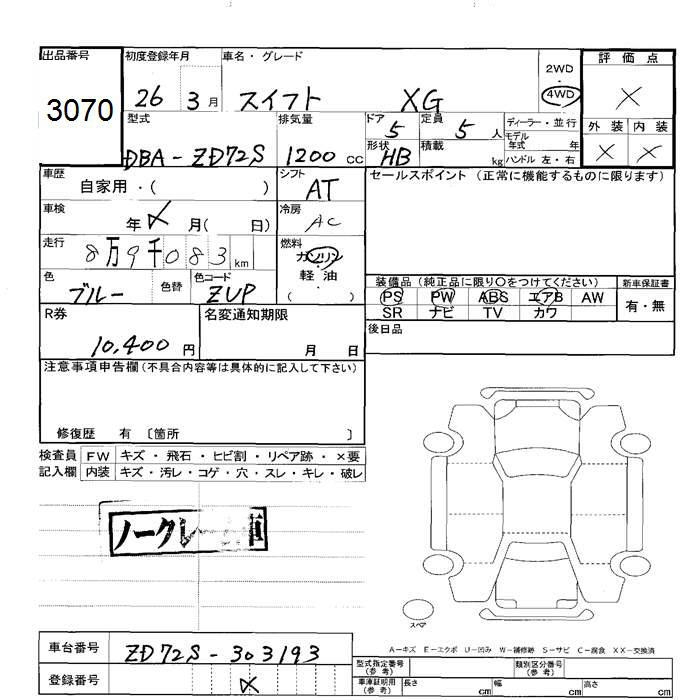 出品番号
3070
初度登録年月
26 3月
車名・グレード
スイフト XG
2WD
・
4WD
評価点
×
外装 内装
× ×
型式
DBA-ZD72S
排気量
1200 cc
ドア
5
定員
5 人
形状
HB
積載
kg
ディーラー・並行
モデル
年式 年
ハンドル 左・右
車歴
自家用・( )
シフト
AT
セールスポイント (正常に機能するものに限ります)
車検
年 〆 月( 日)
冷房
AC
走行
8万9千083 km
燃料
ガソリン
・
軽油
・
( )
色
ブルー
色替
色コード
ZUP
装備品 (純正品に限り〇をつけてください)
新車保証書
PS PW ABS エアB AW
SR ナビ TV カワ
有・無
R券
10,400 円
名変通知期限
月 日
後日品
注意事項申告欄 (不具合内容等は具体的に記入して下さい)
修復歴 有 〔箇所 〕
検査員
記入欄
FW キズ・飛石・ヒビ割・リペア跡・×要
内装 キズ・汚レ・コゲ・穴・スレ・キレ・破レ
ノークレーム車
スペア
A-キズ E-エクボ U-凹み W-補修跡 S-サビ C-腐食 XX-交換済
車台番号
ZD72S-303193
登録番号
〆
型式指定番号
(参考)
類別区分番号
(参考)
車庫証明用
(参考)
長さ cm 幅 cm 高さ cm